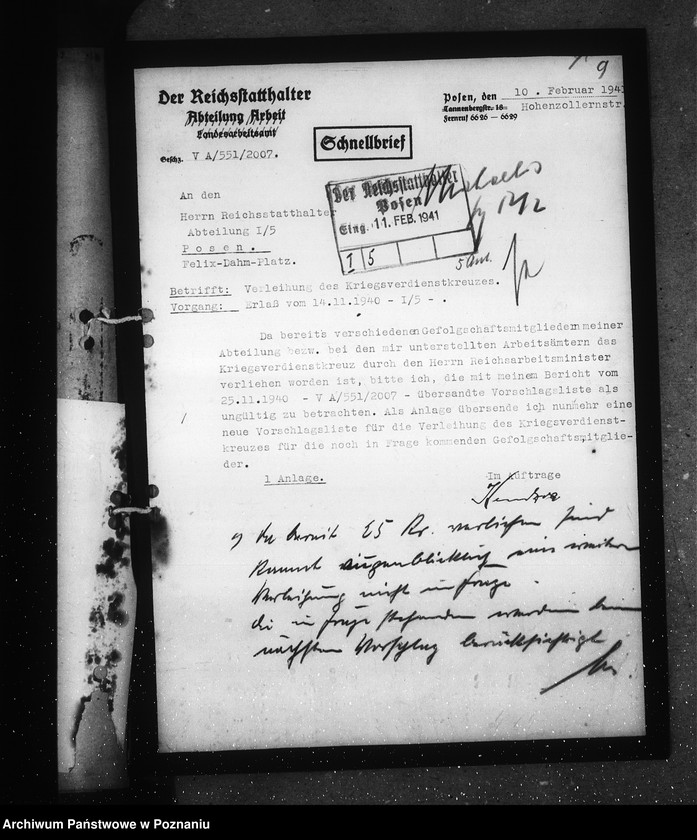 9
Der Reichsstatthalter
Abteilung Arbeit
Landesarbeitsamt
Schnellbrief
Posen, den 10. Februar 1941
Tannenbergstr. 18 Hohenzollernstr.
Fernruf 6626 — 6629
Geschz. V A/551/2007.
Der Reichsstatthalter
Posen
Eing. 11. FEB. 1941
I 5
5 Anl.
An den
Herrn Reichsstatthalter
Abteilung I/5
Posen.
Felix-Dahm-Platz.
Betrifft: Verleihung des Kriegsverdienstkreuzes.
Vorgang: Erlaß vom 14.11.1940 - I/5 - .
Da bereits verschiedenen Gefolgschaftsmitgliedern meiner
Abteilung bezw. bei den mir unterstellten Arbeitsämtern das
Kriegsverdienstkreuz durch den Herrn Reichsarbeitsminister
verliehen worden ist, bitte ich, die mit meinem Bericht vom
25.11.1940 - V A/551/2007 - übersandte Vorschlagsliste als
ungültig zu betrachten. Als Anlage übersende ich nunmehr eine
neue Vorschlagsliste für die Verleihung des Kriegsverdienst-
kreuzes für die noch in Frage kommenden Gefolgschaftsmitglie-
der.
1 Anlage.
Im Auftrage
Da bereits 25 Kr. verliehen sind
kommt augenblicklich eine weitere
Verleihung nicht in Frage.
Die in Frage stehenden werden beim
nächsten Vorschlag berücksichtigt
Archiwum Państwowe w Poznaniu